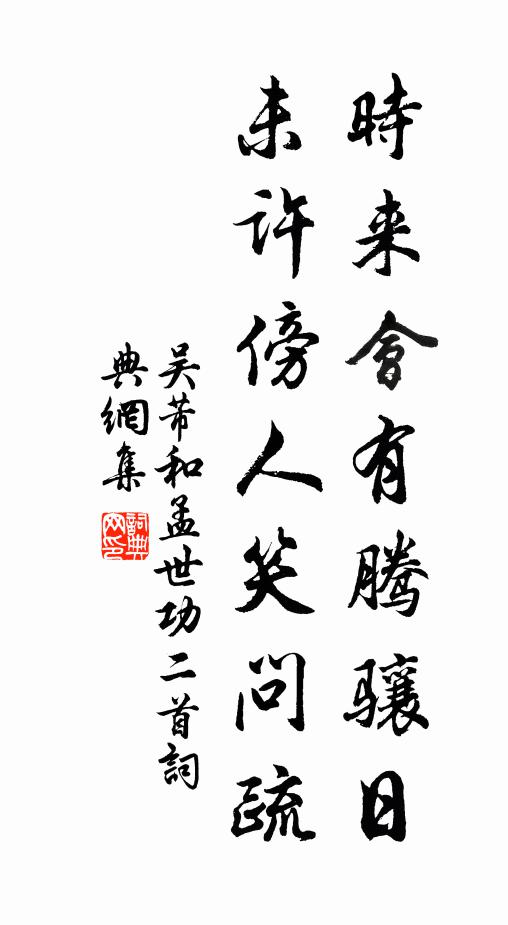 時来會有騰驤日
未許傍人笑問疏
吴芾和孟世功二首詞
典網集
詞典
网印